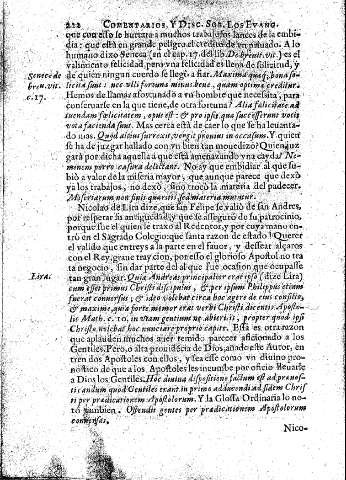 222 COMENTARIOS, Y DISC. SOB. LOS EVANG.
que con esso se hurtara a muchos trabajosos lances de la embi
dia: que está en grande peligro el credito de un priuado. A lo
humano dize Seneca (en el cap. 17. del lib. De breuit. vit.) es el
valimiento felicidad, pero vna felicidad es llena de solicitud, y
de quien ningun cuerdo se llegó a fiar. Maxima quæq; bona so-
licita sunt: nec vlli fortuna minus bene, quam optima creditur.
Hemos de llamar afortunado a vn hombre que necessita, para
conseruarse en la que tiene, de otra fortuna? Alia felicitate ad
tuendam fœlicitatem, opus est: & pro ipsis quæ successerunt votis
vota facienda sunt. Mas cerca está de caer lo que se ha leuanta-
do mas. Quod altius surrexit, vergit pronius in occasum. Y quien
se ha de juzgar hallado con vn bien tan mouedizo? Quien juz
gará por dicha aquella a que está amenazando vna cayda? Ne-
minem porro casura delectant. No ay que embidiar al que su-
bió a valer de la miseria mayor, que aunque parece que dexó
ya los trabajos, no dexó, sino trocó la materia del padecer.
Miseriarum non finis quæritur, sed materia mutatur.
Nicolao de Lira dize, que san Felipe se valió de san Andres,
por respetar su antiguedad, y que se asseguró de su patrocinio,
porque fue el quien le traxo al Redentor, y por cuya mano en-
tró en el Sagrado Colegio; que santa razon de estado! Querer
el valido que entreys a la parte en el fauor, y dessear alçaros
con el Rey, graue traycion, por esso el glorioso Apostol no tra
ta negocio, sin dar parte dél al que fue ocasion que ocupasse
tan gran lugar. Quia Andreas principalior erat ipso (dize Lira)
cum esset primus Christi discipulus, & per ipsum Philippus etiam
fuerat conuersus, & ideo volebat circa hoc agere de eius consilio,
& maxime quia forte memor erat verbi Christi dicentis Aposto-
lis Math. c. 10. in viam gentium ne abieritis, propter quod ipsi
Christo volebat hoc nunciare proprio capite. Está es otra razon
que aplauden muchos a ver temido parecer aficionado a los
Gentiles. Pero lo alta prouidēcia de Dios, añade este Autor, en
tren dos Apostoles con ellos, y sea esse como vn diuino pro-
nostico de que a los Apostoles les incumbe por oficio lleuarle
a Dios los Gentiles. Hoc diuina dispositione factum est ad prænos-
ticandum quod Gentiles erant in primo adducendi ad fidem Chris
ti per prædicationem Apostolorum. Y la Glossa Ordinaria lo no-
tó tambien. Ostendit gentes per prædicationem Apostolorum
conuersas.
Nico-
Seneca de
breu. vit.
c. 17.
Lira.